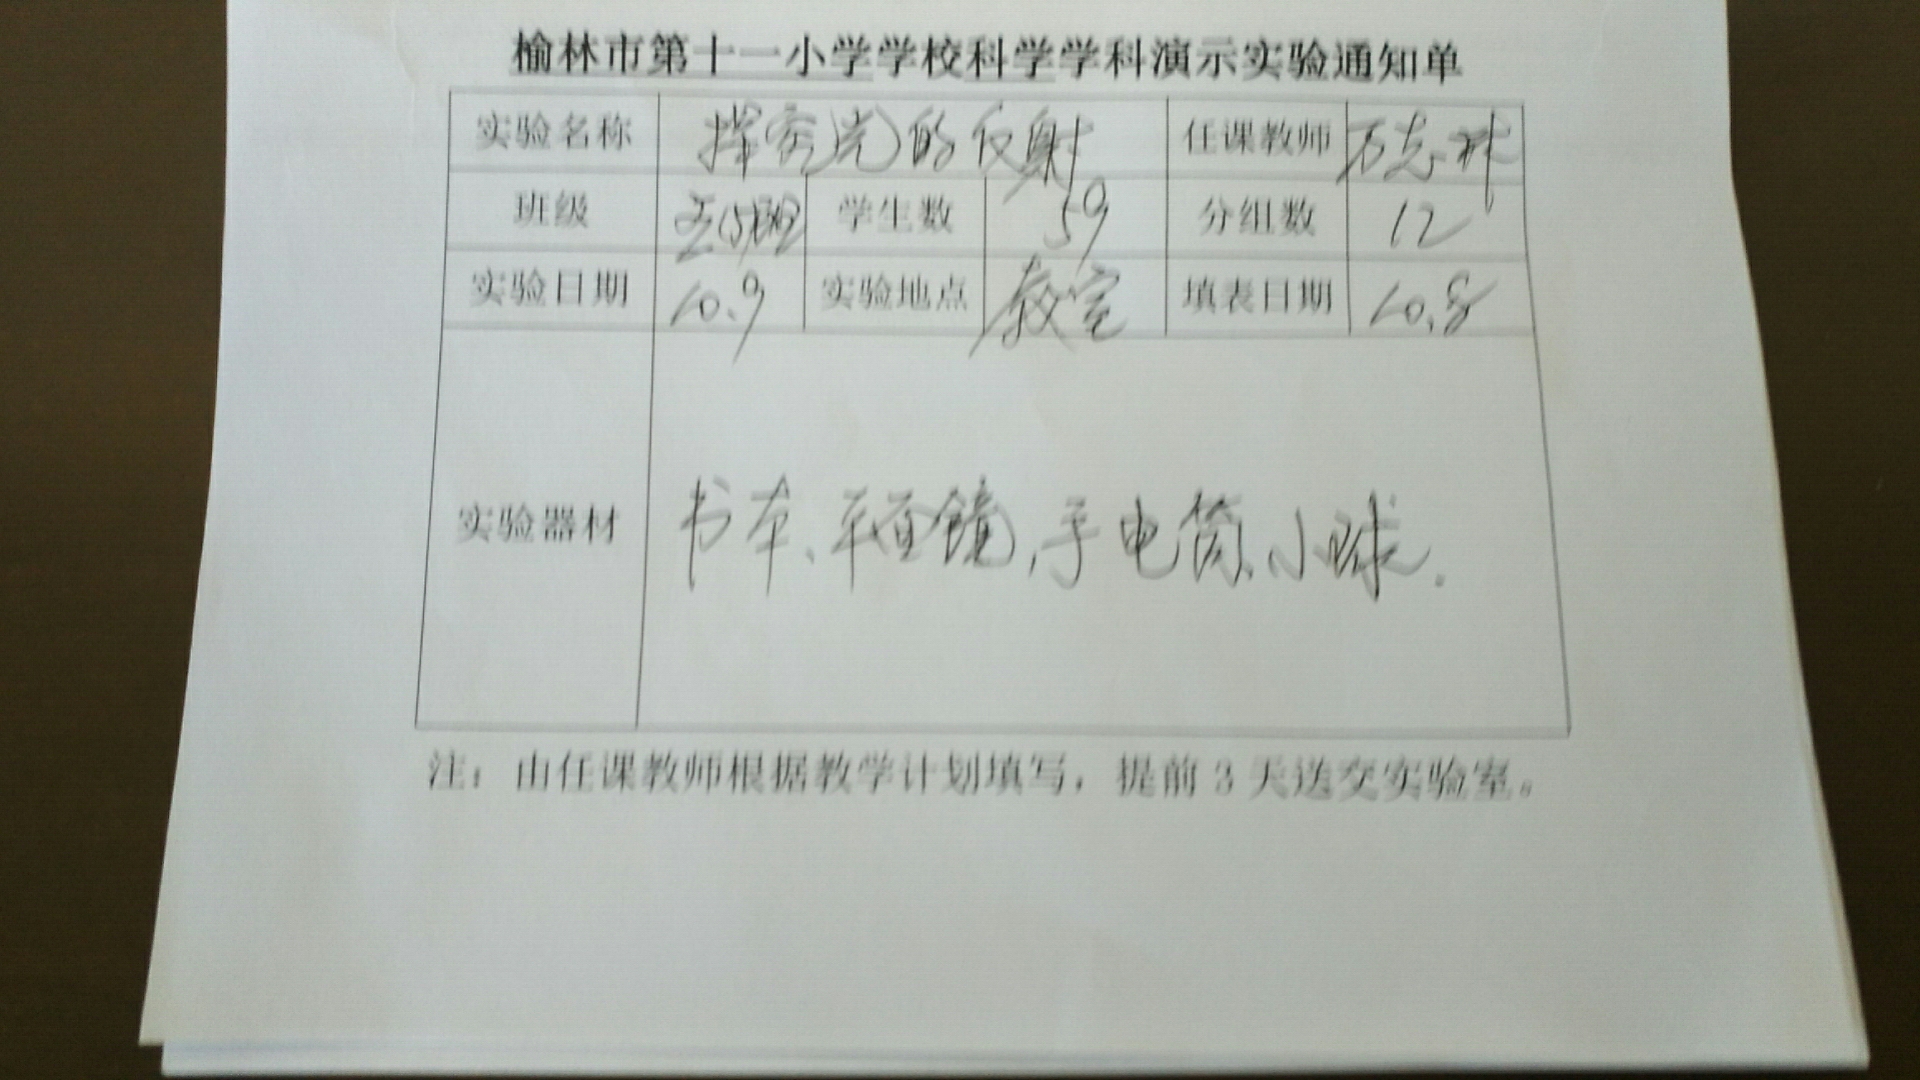 榆林市第十一小学学校科学学科演示实验通知单
实验名称 探究光的反射 任课教师
班级 五(5)班 学生数 59 分组数 12
实验日期 10.9 实验地点 教室 填表日期 10.8
实验器材 书本、平面镜,手电筒、小球.
注：由任课教师根据教学计划填写，提前3天送交实验室。